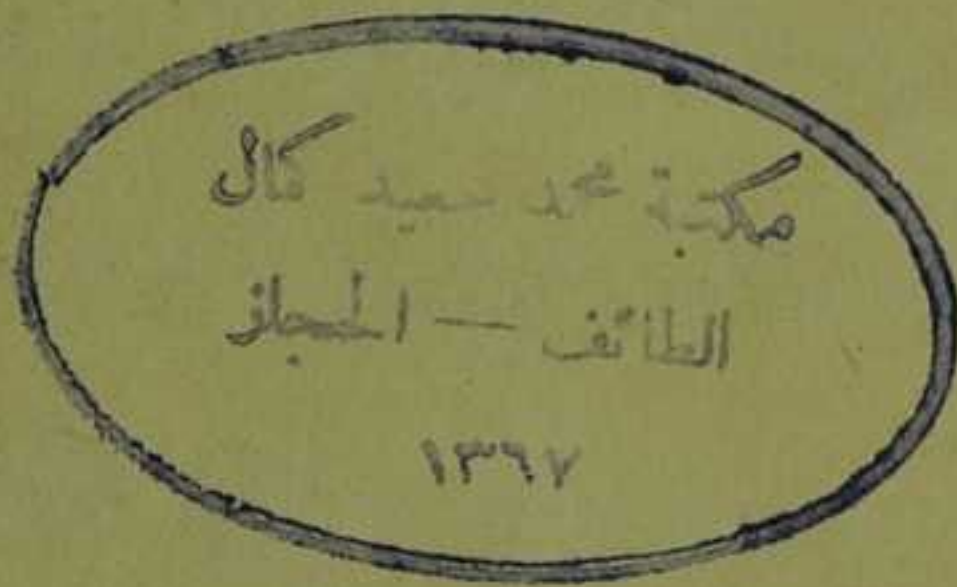 مكتبة محمد سعيد كمال
الطائف — الحجاز
١٣٦٧